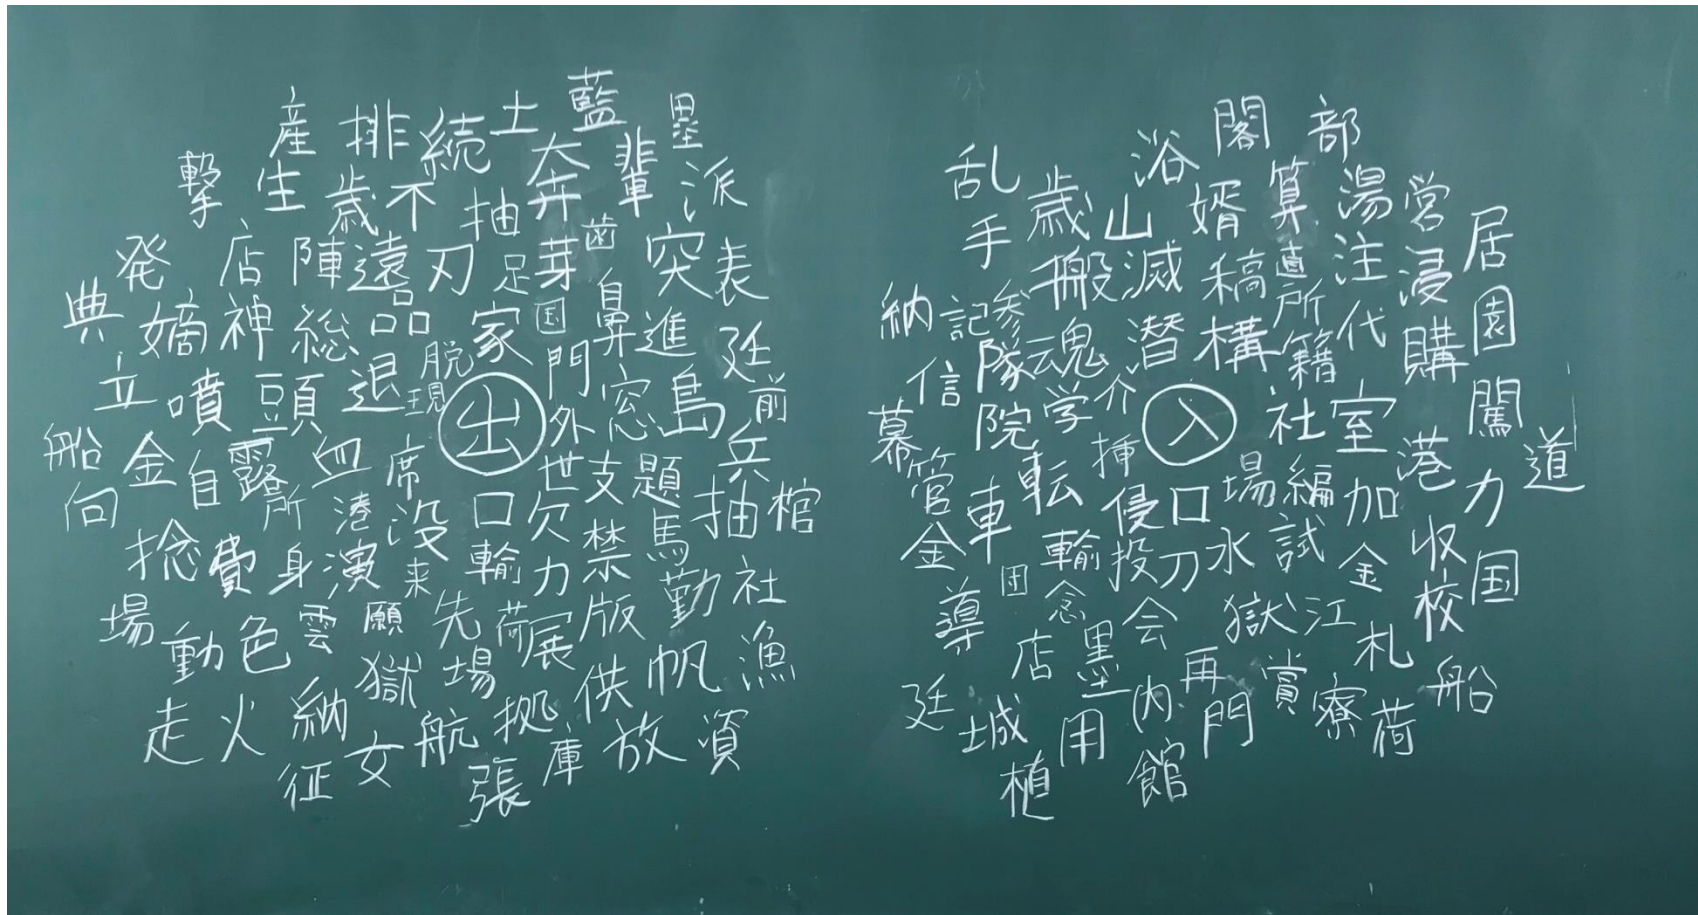 産 排 続 土 藍 塁
撃 生 歳 不 抽 奔 輩 派
発 店 陣 遠 刃 足 芽 歯 突 表
典 嫡 神 総 品 家 国 鼻 進 廷
立 噴 頭 退 脱 現 出 門 窓 島 前
船 金 自 露 血 席 外 世 支 題 兵
向 捻 費 所 身 港 演 没 来 口 輸 欠 力 禁 馬 抽 棺
場 動 色 雲 願 先 荷 展 版 勤 社
走 火 納 獄 場 拠 供 帆 漁
征 女 航 張 庫 放 資
乱 浴 閣 部
手 歳 山 婿 算 湯 営
納 記 参 搬 滅 稿 直 所 注 浸 居
信 隊 魂 潜 構 籍 代 購 園
幕 院 学 介 入 社 室 闖
管 車 転 挿 侵 口 場 編 加 港 力 道
金 導 団 輸 念 投 刀 水 試 金 収 国
店 墨 会 獄 江 札 校
廷 城 用 内 再 門 賞 寮 荷 船
植 館